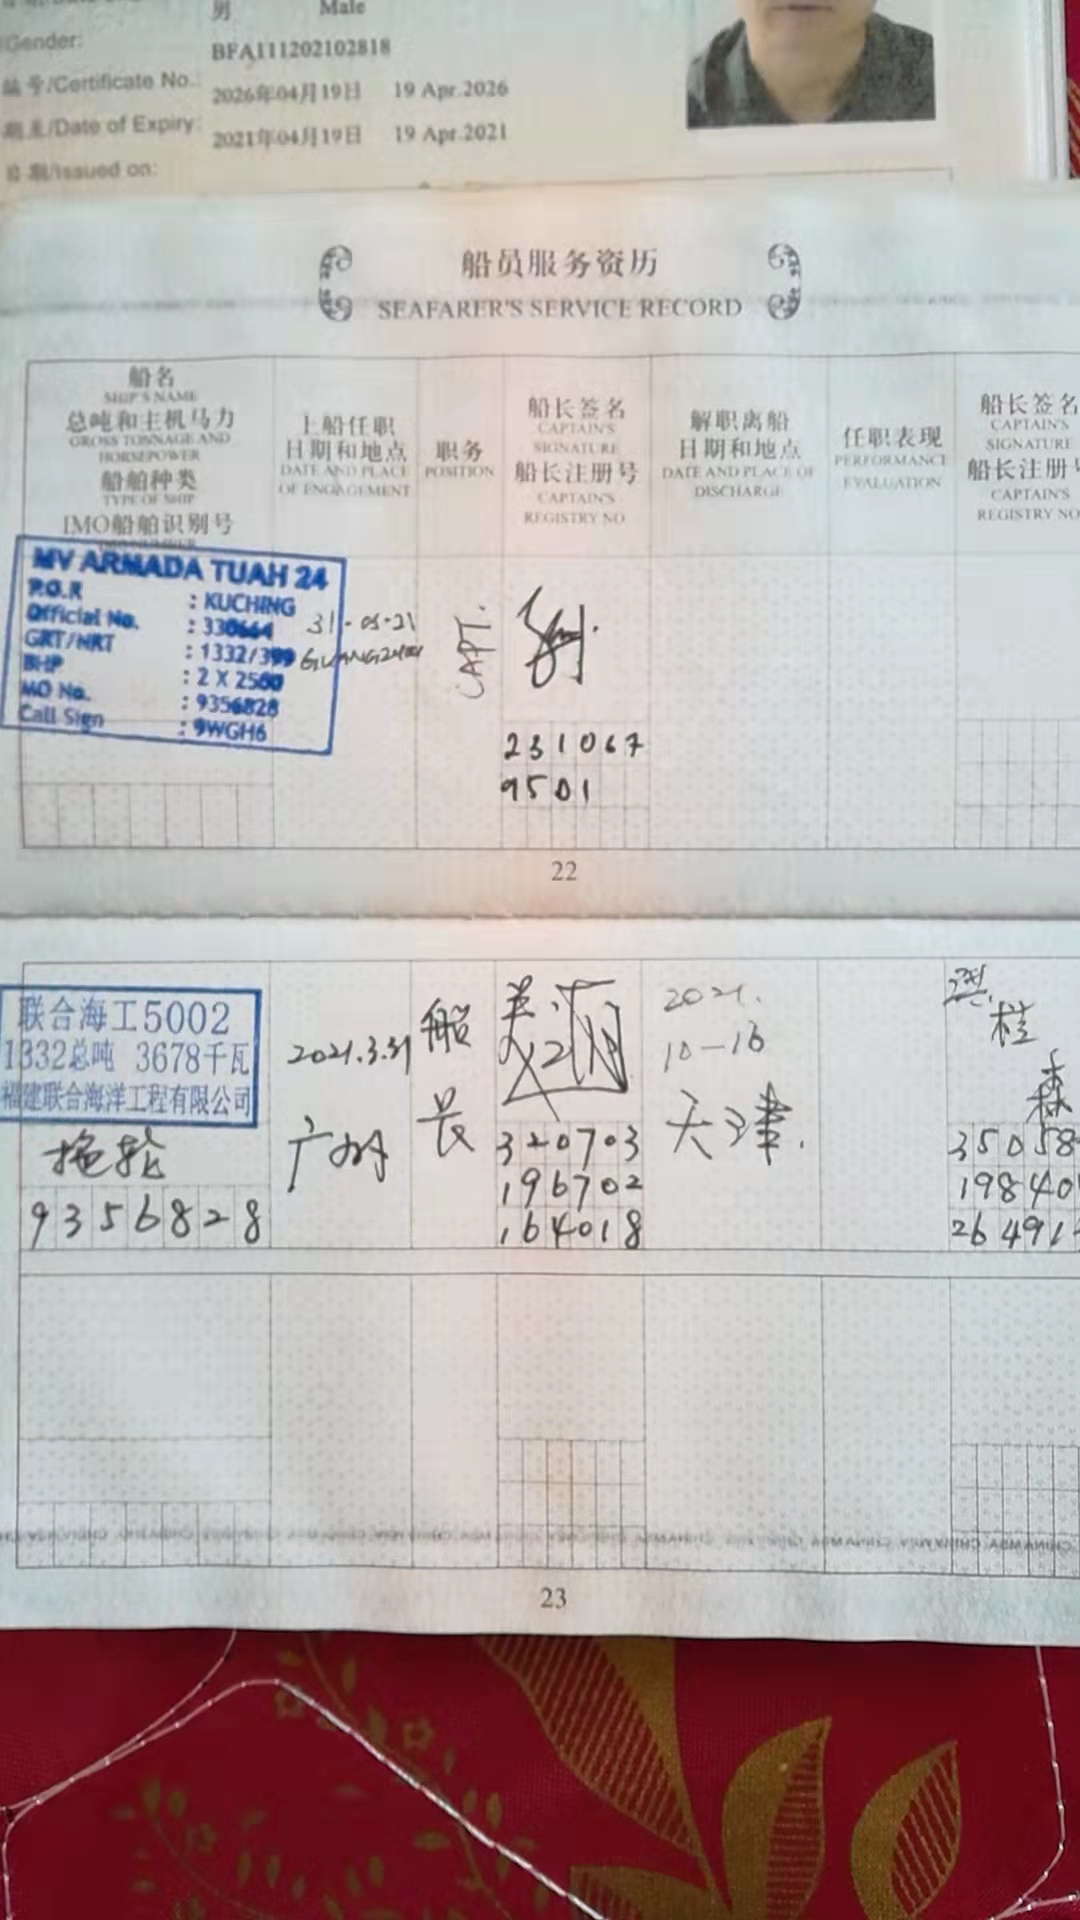 男 Male
/Gender:
BFA111202102818
编号/Certificate No.:
2026年04月19日 19 Apr.2026
期至/Date of Expiry:
2021年04月19日 19 Apr.2021
/Issued on:
船员服务资历
SEAFARER'S SERVICE RECORD
船名
SHIP'S NAME
总吨和主机马力
GROSS TONNAGE AND
HORSEPOWER
船舶种类
TYPE OF SHIP
IMO船舶识别号
上船任职
日期和地点
DATE AND PLACE
OF ENGAGEMENT
职务
POSITION
船长签名
CAPTAIN'S
SIGNATURE
船长注册号
CAPTAIN'S
REGISTRY NO
解职离船
日期和地点
DATE AND PLACE OF
DISCHARGE
任职表现
PERFORMANCE
EVALUATION
船长签名
CAPTAIN'S
SIGNATURE
船长注册号
CAPTAIN'S
REGISTRY NO
MV ARMADA TUAH 24
P.O.R : KUCHING
Official No. : 330664
GRT/NRT : 1332/399
BHP : 2 X 2560
MO No. : 9356828
Call Sign : 9WGH6
31-03-21
GUANGZHOU
CAPT.
231067
9501
22
联合海工5002
1332总吨 3678千瓦
福建联合海洋工程有限公司
拖轮
9356828
2021.3.31
广州
船长
320703
196702
164018
2021.
10-16
天津.
洪桂森
35058
198401
26491
23